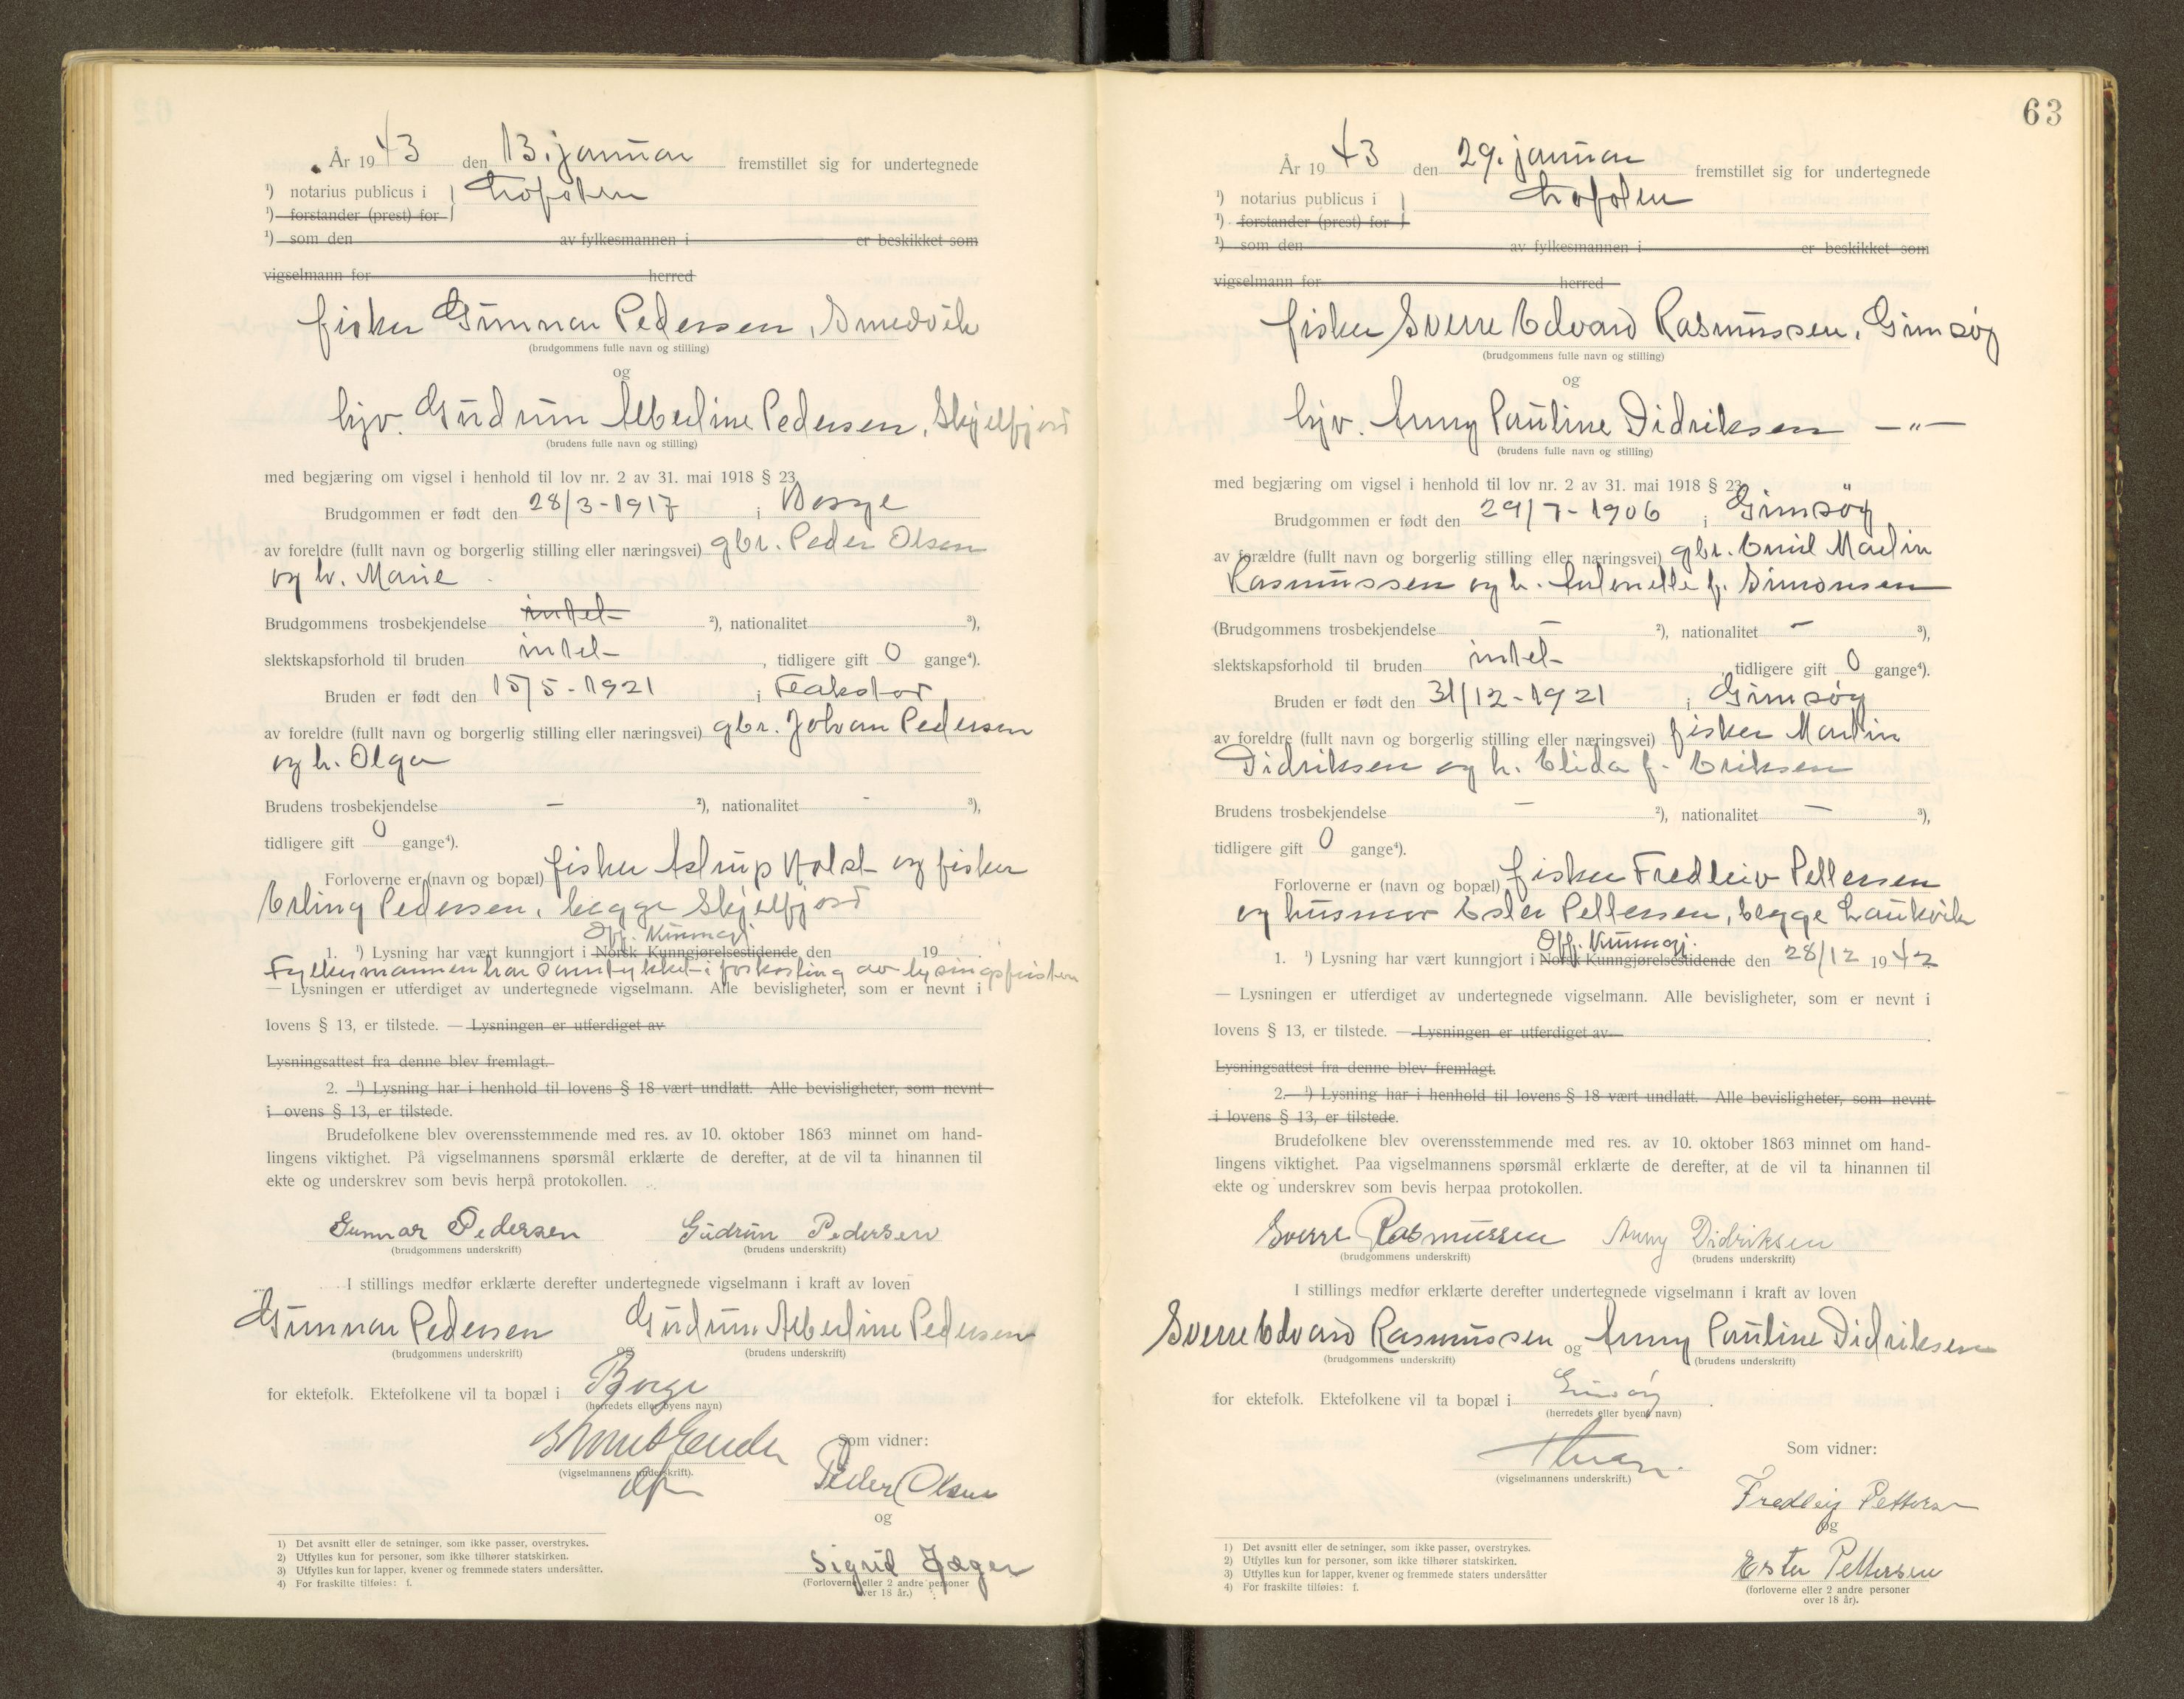 År 1943 den 13. januar fremstillet sig for undertegnede
¹) notarius publicus i Lofoten
¹) forstander (prest) for
¹) som den av fylkesmannen i er beskikket som
vigselmann for herred
fisker Gunnar Pedersen, Smedvik
(brudgommens fulle navn og stilling)
og
hjv. Gudrun Albertine Pedersen, Skjelfjord
(brudens fulle navn og stilling)
med begjæring om vigsel i henhold til lov nr. 2 av 31. mai 1918 § 23.
Brudgommen er født den 28/3-1917 i Borge
av foreldre (fullt navn og borgerlig stilling eller næringsvei) gbr. Peder Olsen
og h. Marie
Brudgommens trosbekjendelse intet ²), nationalitet ³),
slektskapsforhold til bruden intet , tidligere gift 0 gange⁴).
Bruden er født den 15/5-1921 i Flakstad
av foreldre (fullt navn og borgerlig stilling eller næringsvei) gbr. Johan Pedersen
og h. Olga
Brudens trosbekjendelse - ²), nationalitet - ³),
tidligere gift 0 gange⁴).
Forloverne er (navn og bopæl) fisker Astrup Holst og fisker
Erling Pedersen, begge Skjelfjord
Off. Kunngj.
1. ¹) Lysning har vært kunngjort i Norsk Kunngjørelsestidende den 19
Fylkesmannen har samtykket i forkorting av lysingsfristen
— Lysningen er utferdiget av undertegnede vigselmann. Alle bevisligheter, som er nevnt i
lovens § 13, er tilstede. — Lysningen er utferdiget av
Lysningsattest fra denne blev fremlagt.
2. ¹) Lysning har i henhold til lovens § 18 vært undlatt. Alle bevisligheter, som nevnt
i ovens § 13, er tilstede.
Brudefolkene blev overensstemmende med res. av 10. oktober 1863 minnet om hand-
lingens viktighet. På vigselmannens spørsmål erklærte de derefter, at de vil ta hinannen til
ekte og underskrev som bevis herpå protokollen.
Gunnar Pedersen Gudrun Pedersen
(brudgommens underskrift) (brudens underskrift)
I stillings medfør erklærte derefter undertegnede vigselmann i kraft av loven
Gunnar Pedersen og Gudrun Albertine Pedersen
(brudgommens underskrift) (brudens underskrift)
for ektefolk. Ektefolkene vil ta bopæl i Borge
(herredets eller byens navn)
Som vidner:
(vigselmannens underskrift).
Peder Olsen
og
Sigrid Jæger
(Forloverne eller 2 andre personer
over 18 år.)
1) Det avsnitt eller de setninger, som ikke passer, overstrykes.
2) Utfylles kun for personer, som ikke tilhører statskirken.
3) Utfylles kun for lapper, kvener og fremmede staters undersåtter.
4) For fraskilte tilføies: f.
63
År 1943 den 29. januar fremstillet sig for undertegnede
¹) notarius publicus i Lofoten
¹) forstander (prest) for
¹) som den av fylkesmannen i er beskikket som
vigselmann for herred
fisker Sverre Edvard Rasmussen, Gimsøy
(brudgommens fulle navn og stilling)
og
hjv. Anny Pauline Didriksen —"—
(brudens fulle navn og stilling)
med begjæring om vigsel i henhold til lov nr. 2 av 31. mai 1918 § 23.
Brudgommen er født den 29/7-1906 i Gimsøy
av forældre (fullt navn og borgerlig stilling eller næringsvei) gbr. Emil Martin
Rasmussen og h. Antonette f. Simonsen
(Brudgommens trosbekjendelse — ²), nationalitet - ³),
slektskapsforhold til bruden intet , tidligere gift 0 gange⁴).
Bruden er født den 31/12-1921 i Gimsøy
av foreldre (fullt navn og borgerlig stilling eller næringsvei) fisker Martin
Didriksen og h. Elida f. Eriksen
Brudens trosbekjendelse — ²), nationalitet — ³),
tidligere gift 0 gange⁴).
Forloverne er (navn og bopæl) fisker Fredleiv Pettersen
og husmor Ester Pettersen, begge Laukvik
Off. Kunngj.
1. ¹) Lysning har vært kunngjort i Norsk Kunngjørelsestidende den 28/12 1942
— Lysningen er utferdiget av undertegnede vigselmann. Alle bevisligheter, som er nevnt i
lovens § 13, er tilstede. — Lysningen er utferdiget av
Lysningsattest fra denne blev fremlagt.
2. ¹) Lysning har i henhold til lovens § 18 vært undlatt. Alle bevisligheter, som nevnt
i lovens § 13, er tilstede.
Brudefolkene blev overensstemmende med res. av 10. oktober 1863 minnet om hand-
lingens viktighet. Paa vigselmannens spørsmål erklærte de derefter, at de vil ta hinannen til
ekte og underskrev som bevis herpaa protokollen.
Sverre Rasmussen Anny Didriksen
(brudgommens underskrift) (brudens underskrift)
I stillings medfør erklærte derefter undertegnede vigselmann i kraft av loven
Sverre Edvard Rasmussen og Anny Pauline Didriksen
(brudgommens underskrift) (brudens underskrift)
for ektefolk. Ektefolkene vil ta bopæl i Gimsøy
(herredets eller byens navn)
Som vidner:
(vigselmannens underskrift.)
Fredleiv Pettersen
og
Ester Pettersen
(forloverne eller 2 andre personer
over 18 år).
1) Det avsnitt eller de setninger, som ikke passer, overstrykes.
2) Utfylles kun for personer, som ikke tilhører statskirken.
3) Utfylles kun for lapper, kvener og fremmede staters undersåtter
4) For fraskilte tilføies: f.